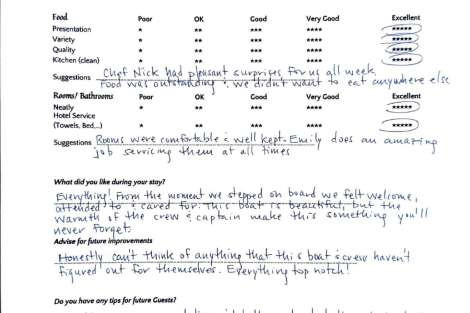 Food Poor OK Good Very Good Excellent
Presentation * ** *** **** *****
Variety * ** *** **** *****
Quality * ** *** **** *****
Kitchen (clean) * ** *** **** *****
Suggestions Chef Nick had pleasant surprises for us all week.
Food was outstanding & we didn't want to eat anywhere else
Rooms/ Bathrooms Poor OK Good Very Good Excellent
Neatly * ** *** **** *****
Hotel Service
(Towels, Bed,..) * ** *** **** *****
Suggestions Rooms were comfortable & well kept. Emily does an amazing
job servicing them at all times
What did you like during your stay?
Everything! From the moment we stepped on board we felt welcome,
attended to & cared for. This boat is beautiful, but the
warmth of the crew & captain make this something you'll
never forget.
Advise for future improvements
Honestly can't think of anything that this boat & crew haven't
figured out for themselves. Everything top notch!
Do you have any tips for future Guests?